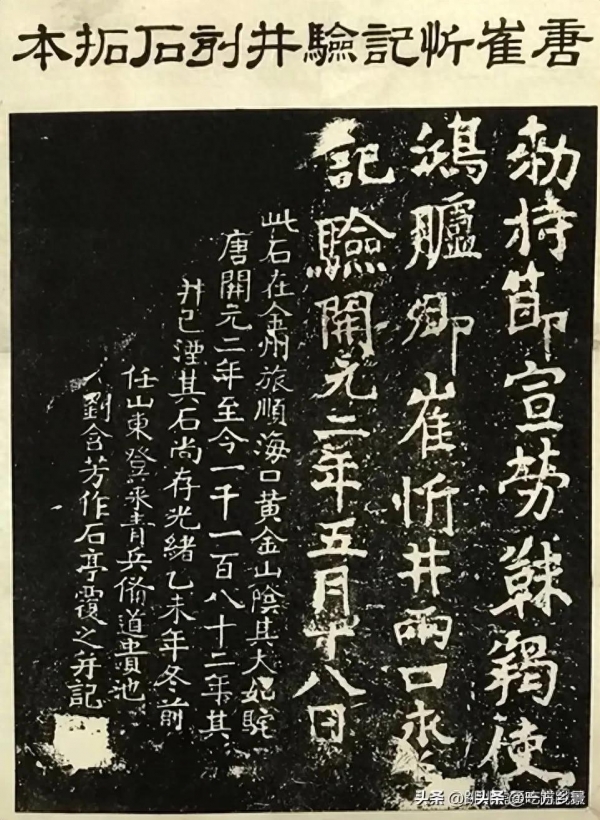 唐崔忻記驗井刻石拓本
勅持節宣勞靺羯使
鴻臚卿崔忻井兩口永
記驗開元二年五月十八日
此石在金州旅順海口黃金山陰其大如駝
唐開元二年至今一千一百八十二年其
井已湮其石尚存光緒乙未年冬前
任山東登萊青兵備道貴池
劉含芳作石亭覆之并記
头条 @ 头条 @